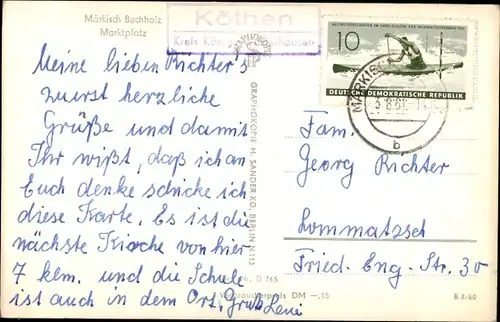 Märkisch Buchholz
Marktplatz
Köthen
Kreis Königs Wusterhausen
Meine lieben Richter's
zuerst herzliche
Grüße und damit
Ihr wißt, daß ich an
Euch denke schicke ich
diese Karte. Es ist die
nächste Kirche von hier
7 klm. und die Schule
ist auch in dem Ort, Gruß Leni
GRAPHOKOPIE H. SANDER KG BERLIN
Nr. D 765
Verbraucherpreis DM —,15
10
DEUTSCHE DEMOKRATISCHE REPUBLIK
MÄRKISCH
b
Fam.
Georg Richter
Lommatzsch
Fried. Eng. Str. 30
B 2/60